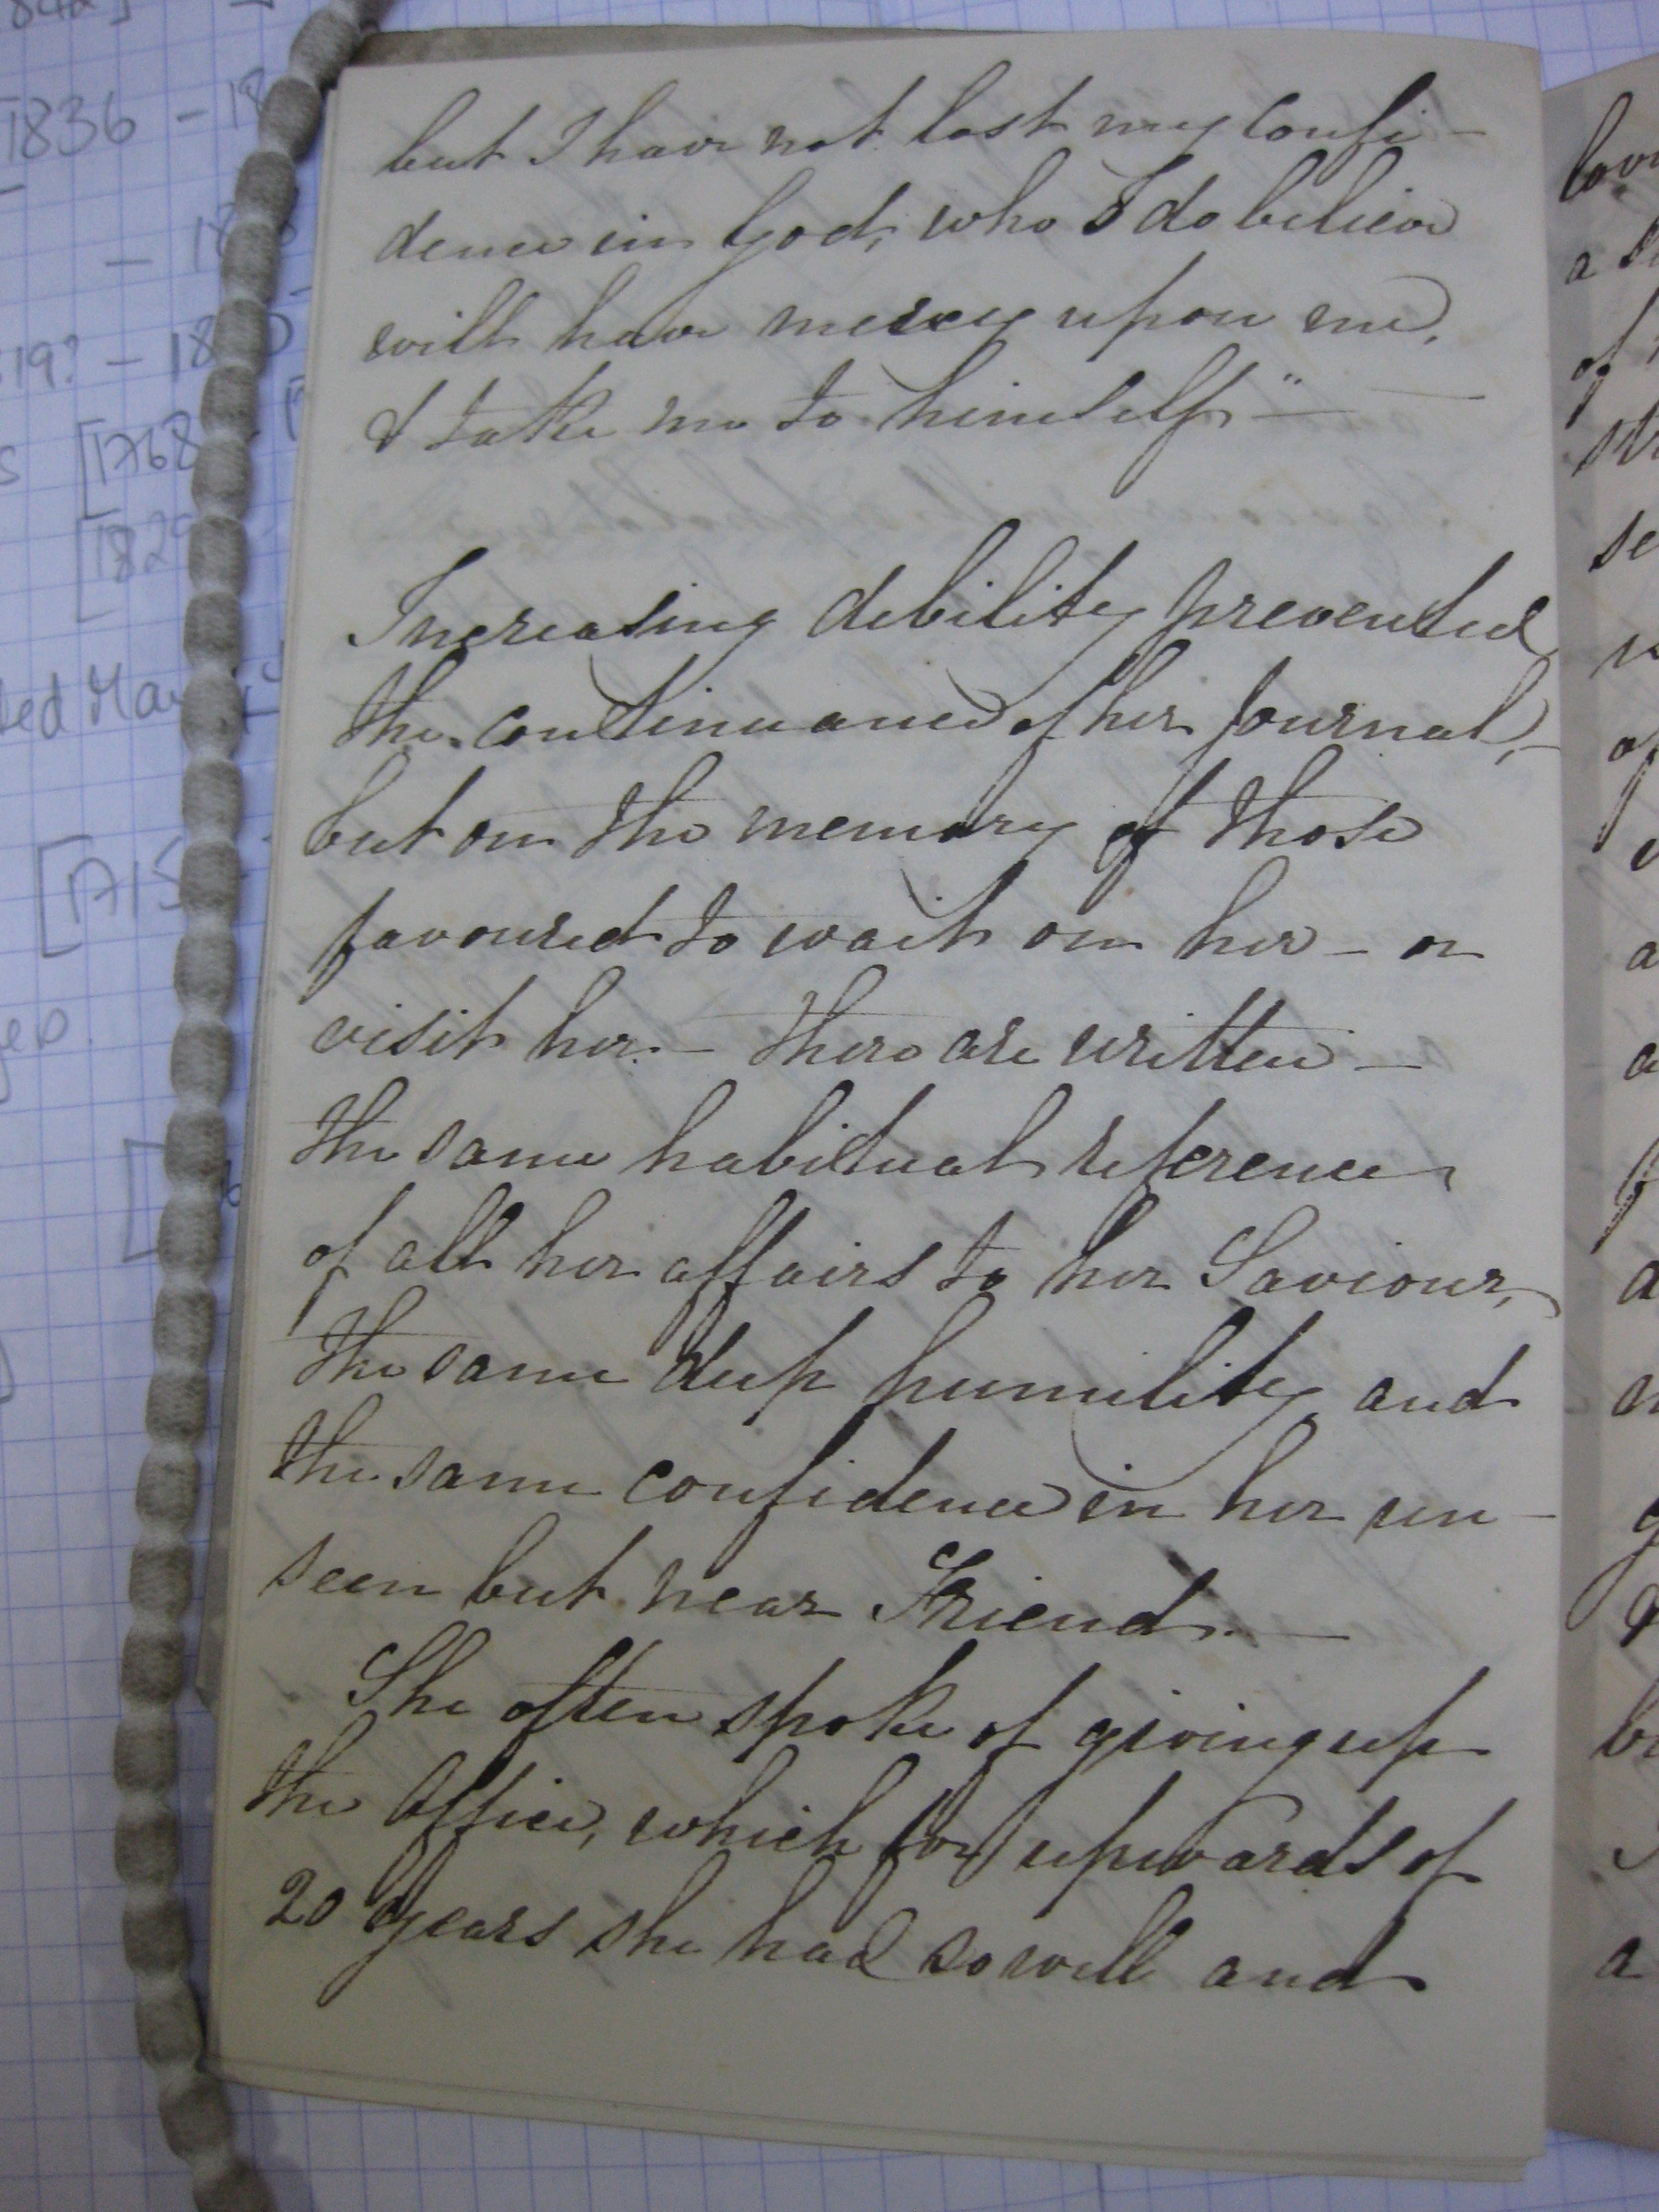 but I have not lost my confi-
dence in God, who I do believe
will have mercy upon me,
& take me to himself" —
Increasing debility prevented
the continuance of her Journal, -
but on the memory of those
favoured to wait on her - or
visit her. - there are written -
the same habitual reference
of all her affairs to her Saviour,
the same deep humility and
the same confidence in her un-
seen but near Friend. —
She often spoke of giving up
the Office, which for upwards of
20 years she had so well and
1836 - 18
[1768
[182
[1715
a
of
se
of
a
a
a